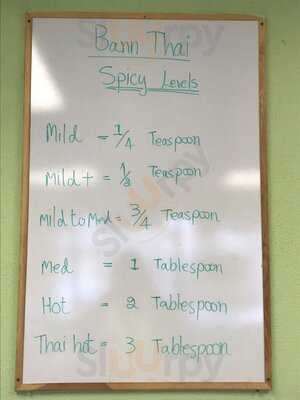 Bann Thai
Spicy Levels
Mild = 1/4 Teaspoon
Mild + = 1/2 Teaspoon
Mild to Med = 3/4 Teaspoon
Med = 1 Tablespoon
Hot = 2 Tablespoon
Thai hot = 3 Tablespoon
sluurpy
sluurpy
sluurpy